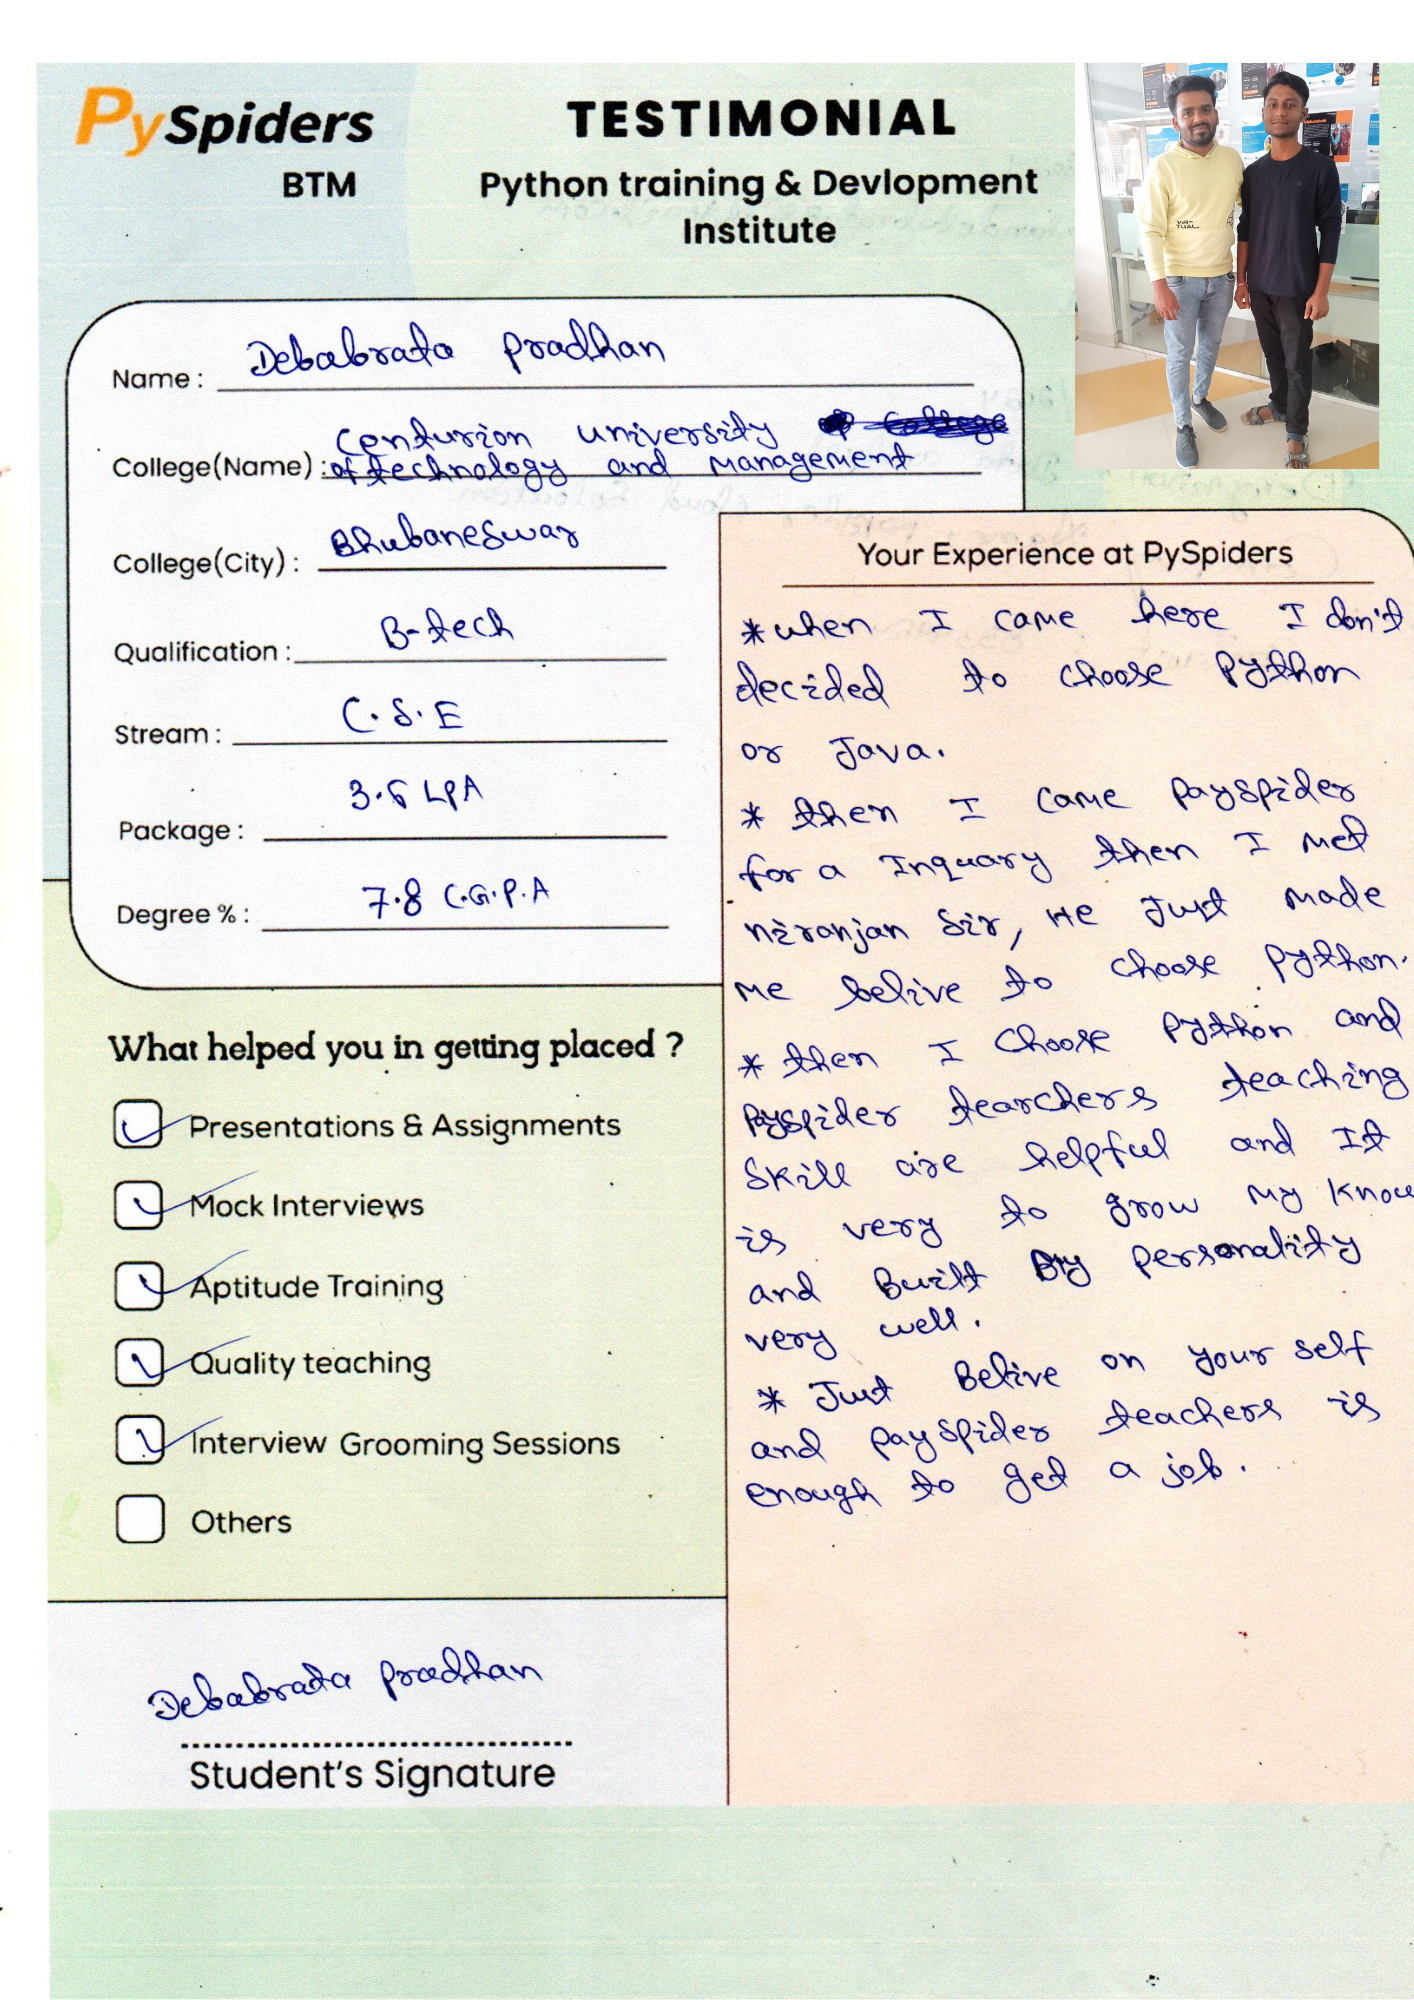 PySpiders
BTM
TESTIMONIAL
Python training & Devlopment
Institute
VIR-
TUAL.
Name : Debabrata Pradhan
College(Name) : Centurion university
of technology and management
College(City) : Bhubaneswar
Qualification : B-tech
Stream : C.S.E
Package : 3.6 LPA
Degree % : 7.8 C.G.P.A
What helped you in getting placed ?
Presentations & Assignments
Mock Interviews
Aptitude Training
Quality teaching
Interview Grooming Sessions
Others
Debabrata Pradhan
Student's Signature
Your Experience at PySpiders
* when I came here I don't
decided to choose Python
or Java.
* then I came payspider
for a Inquary then I met
niranjan Sir, He Just made
me belive to choose python.
* then I choose Python and
Payspider tearchers teaching
Skill are helpful and It
is very to grow my know
and Built By personality
very well.
* Just Belive on your self
and payspider teachers is
enough to get a job.